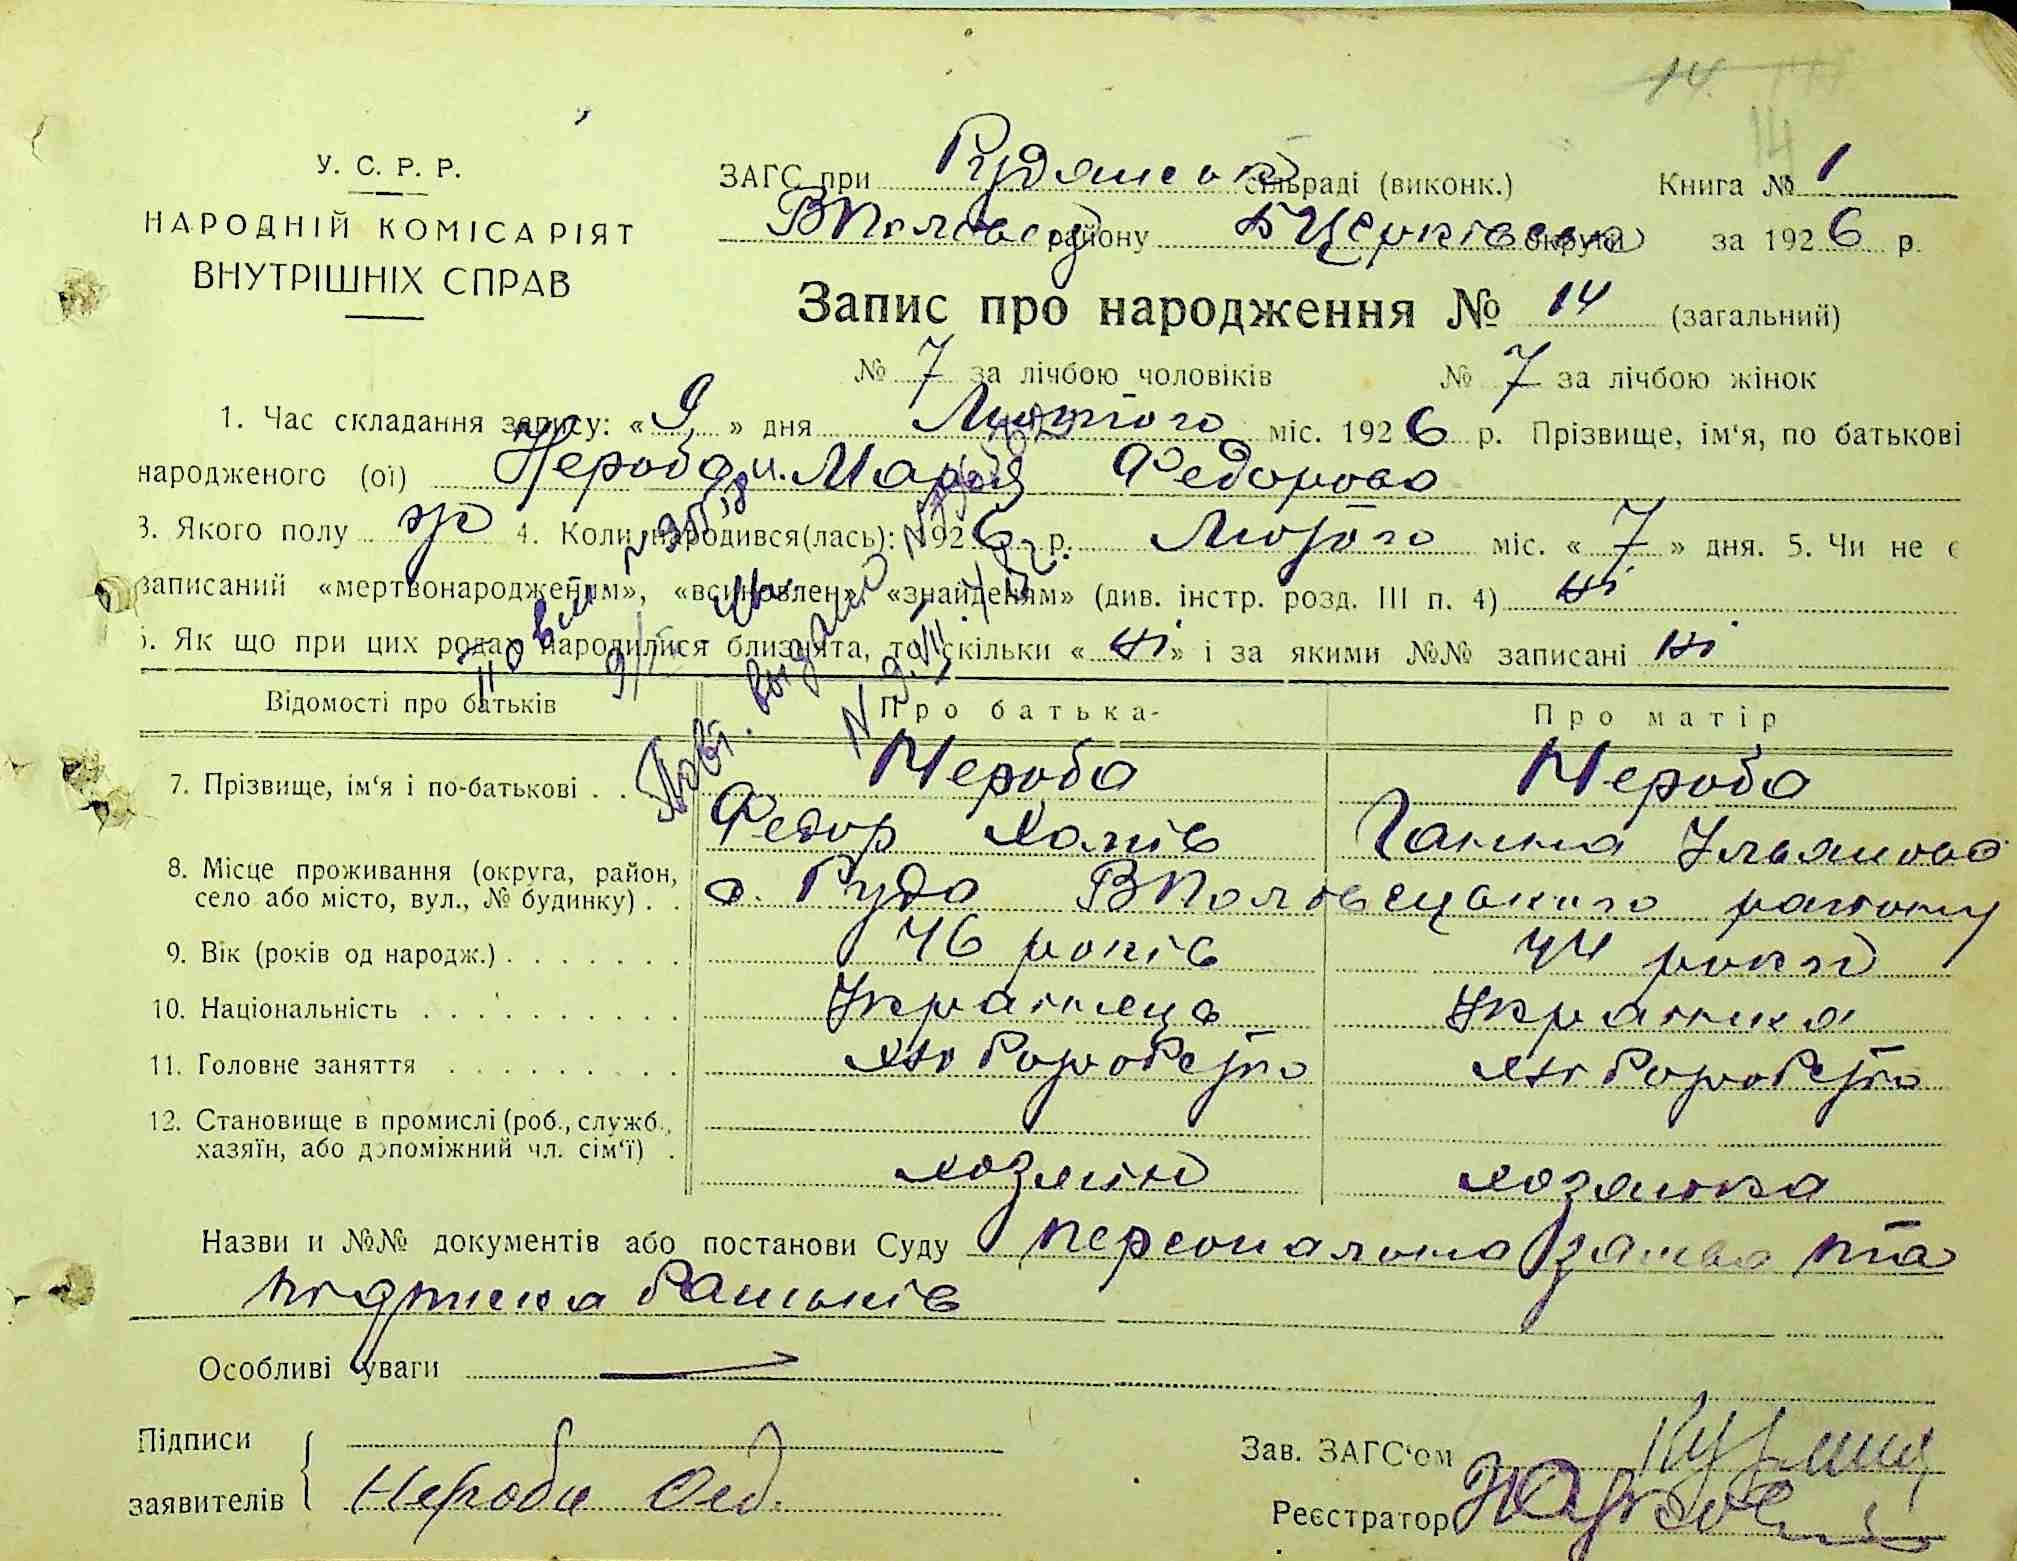 14.
14
У. С. Р. Р.
НАРОДНІЙ КОМІСАРІЯТ
ВНУТРІШНІХ СПРАВ
ЗАГС при Рудянськ сільраді (виконк.) Книга № 1
ВПоловец району БЦерківсько округи за 1926 р.
Запис про народження № 14 (загальний)
№ 7 за лічбою чоловіків № 7 за лічбою жінок
1. Час складання запису: « 9 » дня Лютого міс. 1926 р. Прізвище, ім‘я, по батькові
народженого (ої) Нероба Марія Федорова
3. Якого полу жр 4. Коли народився(лась): 1926 р. Лютого міс. « 7 » дня. 5. Чи не є
записаний «мертвонародженим», «всиновлен», «знайденям» (див. інстр. розд. III п. 4) ні
6. Як що при цих родах народилися близнята, то скільки « ні » і за якими №№ записані ні
Відомості про батьків Про батька Про матір
7. Прізвище, ім‘я і по-батькові . . Нероба Нероба
Федор Хомів Ганна Ульянова
8. Місце проживання (округа, район, село або місто, вул., № будинку) . . с. Руда ВПоловецького району
9. Вік (років од народж.) . . . . . . . 46 років 44 роки
10. Національність . . . . . . . . . . Українець Українка
11. Головне заняття . . . . . . . . . хліборобство хліборобство
12. Становище в промислі (роб., служб., хазяїн, або допоміжний чл. сім‘ї) . хозяїн хозяйка
Назви и №№ документів або постанови Суду персональна заява та
підписка батьків
Особливі уваги
Підписи
заявителів Нероба Фед.
Зав. ЗАГС‘ом
Реєстратор